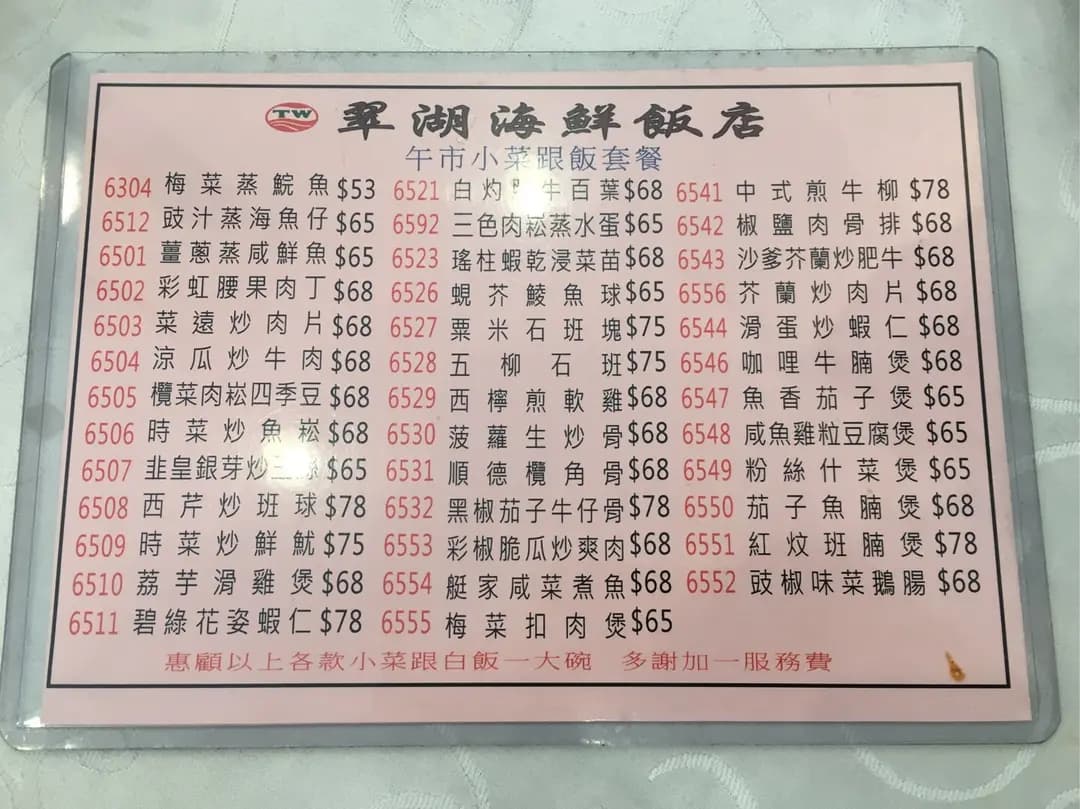 TW 翠湖海鮮飯店
午市小菜跟飯套餐
6304 梅菜蒸鯇魚 $53
6512 豉汁蒸海魚仔 $65
6501 薑蔥蒸咸鮮魚 $65
6502 彩虹腰果肉丁 $68
6503 菜遠炒肉片 $68
6504 涼瓜炒牛肉 $68
6505 欖菜肉崧四季豆 $68
6506 時菜炒魚崧 $68
6507 韭皇銀芽炒 $65
6508 西芹炒班球 $78
6509 時菜炒鮮魷 $75
6510 荔芋滑雞煲 $68
6511 碧綠花姿蝦仁 $78
6521 白灼牛百葉 $68
6592 三色肉崧蒸水蛋 $65
6523 瑤柱蝦乾浸菜苗 $68
6526 蜆芥鯪魚球 $65
6527 粟米石班塊 $75
6528 五柳石班 $75
6529 西檸煎軟雞 $68
6530 菠蘿生炒骨 $68
6531 順德欖角骨 $68
6532 黑椒茄子牛仔骨 $78
6553 彩椒脆瓜炒爽肉 $68
6554 艇家咸菜煮魚 $68
6555 梅菜扣肉煲 $65
6541 中式煎牛柳 $78
6542 椒鹽肉骨排 $68
6543 沙爹芥蘭炒肥牛 $68
6556 芥蘭炒肉片 $68
6544 滑蛋炒蝦仁 $68
6546 咖哩牛腩煲 $68
6547 魚香茄子煲 $65
6548 咸魚雞粒豆腐煲 $65
6549 粉絲什菜煲 $65
6550 茄子魚腩煲 $68
6551 紅炆班腩煲 $78
6552 豉椒味菜鵝腸 $68
惠顧以上各款小菜跟白飯一大碗 多謝加一服務費